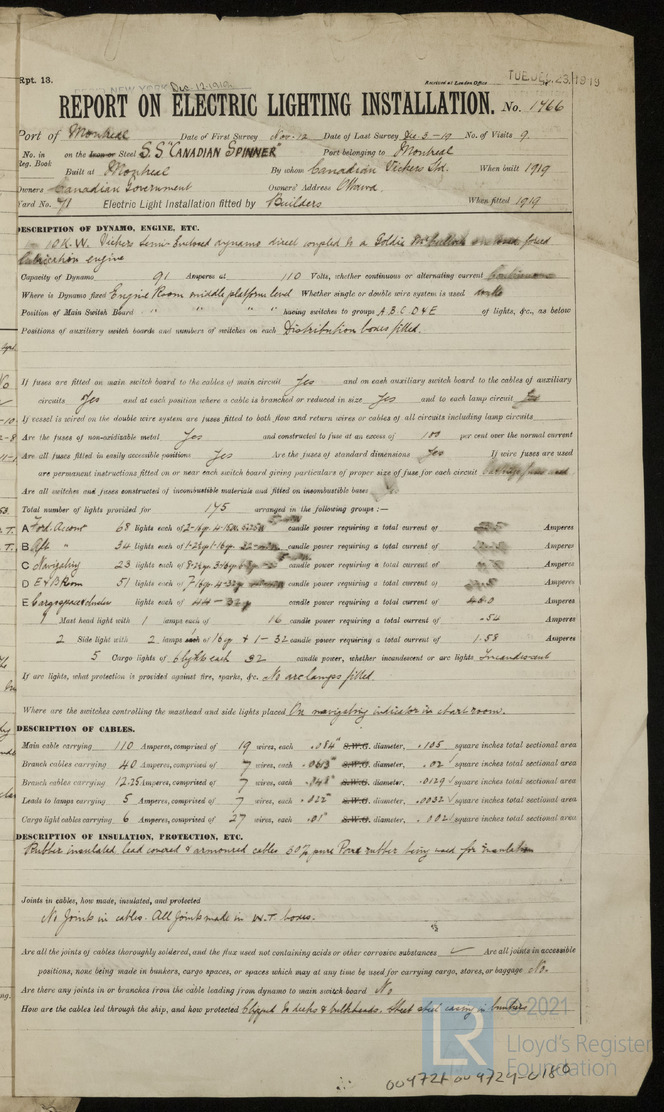 Rpt. 13.
Dec. 12. 1919
Received at London Office
TUE. DEC. 23. 1919
REPORT ON ELECTRIC LIGHTING INSTALLATION. No. 1466
Port of Montreal Date of First Survey Nov. 12 Date of Last Survey Dec 3-19 No. of Visits 9.
No. in Reg. Book on the Iron or Steel S.S "CANADIAN SPINNER" Port belonging to Montreal
Built at Montreal By whom Canadian Vickers Ltd. When built 1919
Owners Canadian Government Owners' Address Ottawa.
Yard No. 71 Electric Light Installation fitted by Builders When fitted 1919
DESCRIPTION OF DYNAMO, ENGINE, ETC.
10 K.W. Vickers Semi Enclosed dynamo direct coupled to a Goldie McCulloch forced
lubrication engine
Capacity of Dynamo 91 Amperes at 110 Volts, whether continuous or alternating current Continuous
Where is Dynamo fixed Engine Room middle platform level Whether single or double wire system is used double
Position of Main Switch Board " " " having switches to groups A B C D & E of lights, &c., as below
Positions of auxiliary switch boards and numbers of switches on each Distribution boxes fitted.
If fuses are fitted on main switch board to the cables of main circuit Yes and on each auxiliary switch board to the cables of auxiliary
circuits Yes and at each position where a cable is branched or reduced in size Yes and to each lamp circuit Yes
If vessel is wired on the double wire system are fuses fitted to both flow and return wires or cables of all circuits including lamp circuits
Are the fuses of non-oxidizable metal Yes and constructed to fuse at an excess of 100 per cent over the normal current
Are all fuses fitted in easily accessible positions Yes Are the fuses of standard dimensions Yes If wire fuses are used
are permanent instructions fitted on or near each switch board giving particulars of proper size of fuse for each circuit Cartridge fuses used
Are all switches and fuses constructed of incombustible materials and fitted on incombustible bases
Total number of lights provided for 175 arranged in the following groups :—
A Ford. Accom 68 lights each of candle power requiring a total current of Amperes
B Aft " 34 lights each of candle power requiring a total current of Amperes
C Navigating 23 lights each of candle power requiring a total current of Amperes
D E & B Room 51 lights each of candle power requiring a total current of Amperes
E Cargo space cluster lights each of 44-32cp candle power requiring a total current of Amperes
1 Mast head light with 1 lamps each of 16 candle power requiring a total current of .54 Amperes
2 Side light with 2 lamps each of 16cp & 1-32 candle power requiring a total current of 1.58 Amperes
5 Cargo lights of 6 lights each 32 candle power, whether incandescent or arc lights Incandescent
If arc lights, what protection is provided against fire, sparks, &c. No arc lamps fitted.
Where are the switches controlling the masthead and side lights placed On navigating indicator in chart room.
DESCRIPTION OF CABLES.
Main cable carrying 110 Amperes, comprised of 19 wires, each .084" S.W.G. diameter, .105 square inches total sectional area
Branch cables carrying 40 Amperes, comprised of 7 wires, each .0613" S.W.G. diameter, .02 square inches total sectional area
Branch cables carrying 12.25 Amperes, comprised of 7 wires, each .048" S.W.G. diameter, .0129 square inches total sectional area
Leads to lamps carrying 5 Amperes, comprised of 7 wires, each .022" S.W.G. diameter, .0032 square inches total sectional area
Cargo light cables carrying 6 Amperes, comprised of 27 wires, each .01" S.W.G. diameter, .002 square inches total sectional area
DESCRIPTION OF INSULATION, PROTECTION, ETC.
Rubber insulated, lead covered & armoured cables 30% pure Para rubber being used for insulation
Joints in cables, how made, insulated, and protected
No Joints in cables. All joints made in W.T. boxes.
Are all the joints of cables thoroughly soldered, and the flux used not containing acids or other corrosive substances ✓ Are all joints in accessible
positions, none being made in bunkers, cargo spaces, or spaces which may at any time be used for carrying cargo, stores, or baggage No.
Are there any joints in or branches from the cable leading from dynamo to main switch board No
How are the cables led through the ship, and how protected Clipped to decks & bulkheads. Sheet steel casing in bunkers
LR © 2021
Lloyd's Register
Foundation
004721-004724-0180